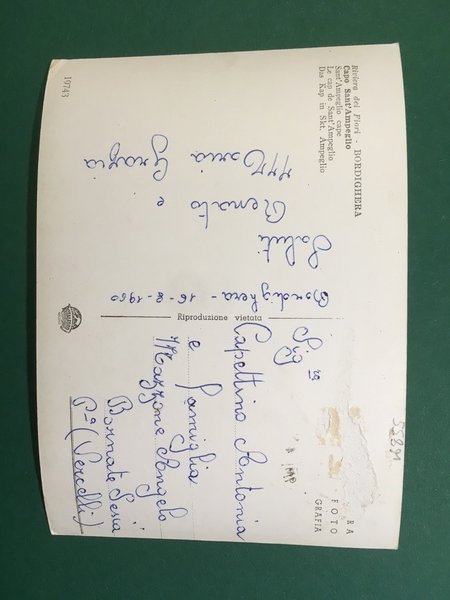 Riviera dei Fiori - BORDIGHERA
Capo Sant'Ampeglio
Sant'Ampeglio cape
Le cap de Sant'Ampeglio
Das Kap in Skt. Ampeglio
Bordighera - 16-8-1960
Saluti
Renato
e
M Maria Grazia
19743
Riproduzione vietata
RA
FOTO
GRAFIA
55291
Sig.ra
Capettino Antonia
e famiglia
Mazzone Angelo
Bornate Sesia
P-a (Vercelli)